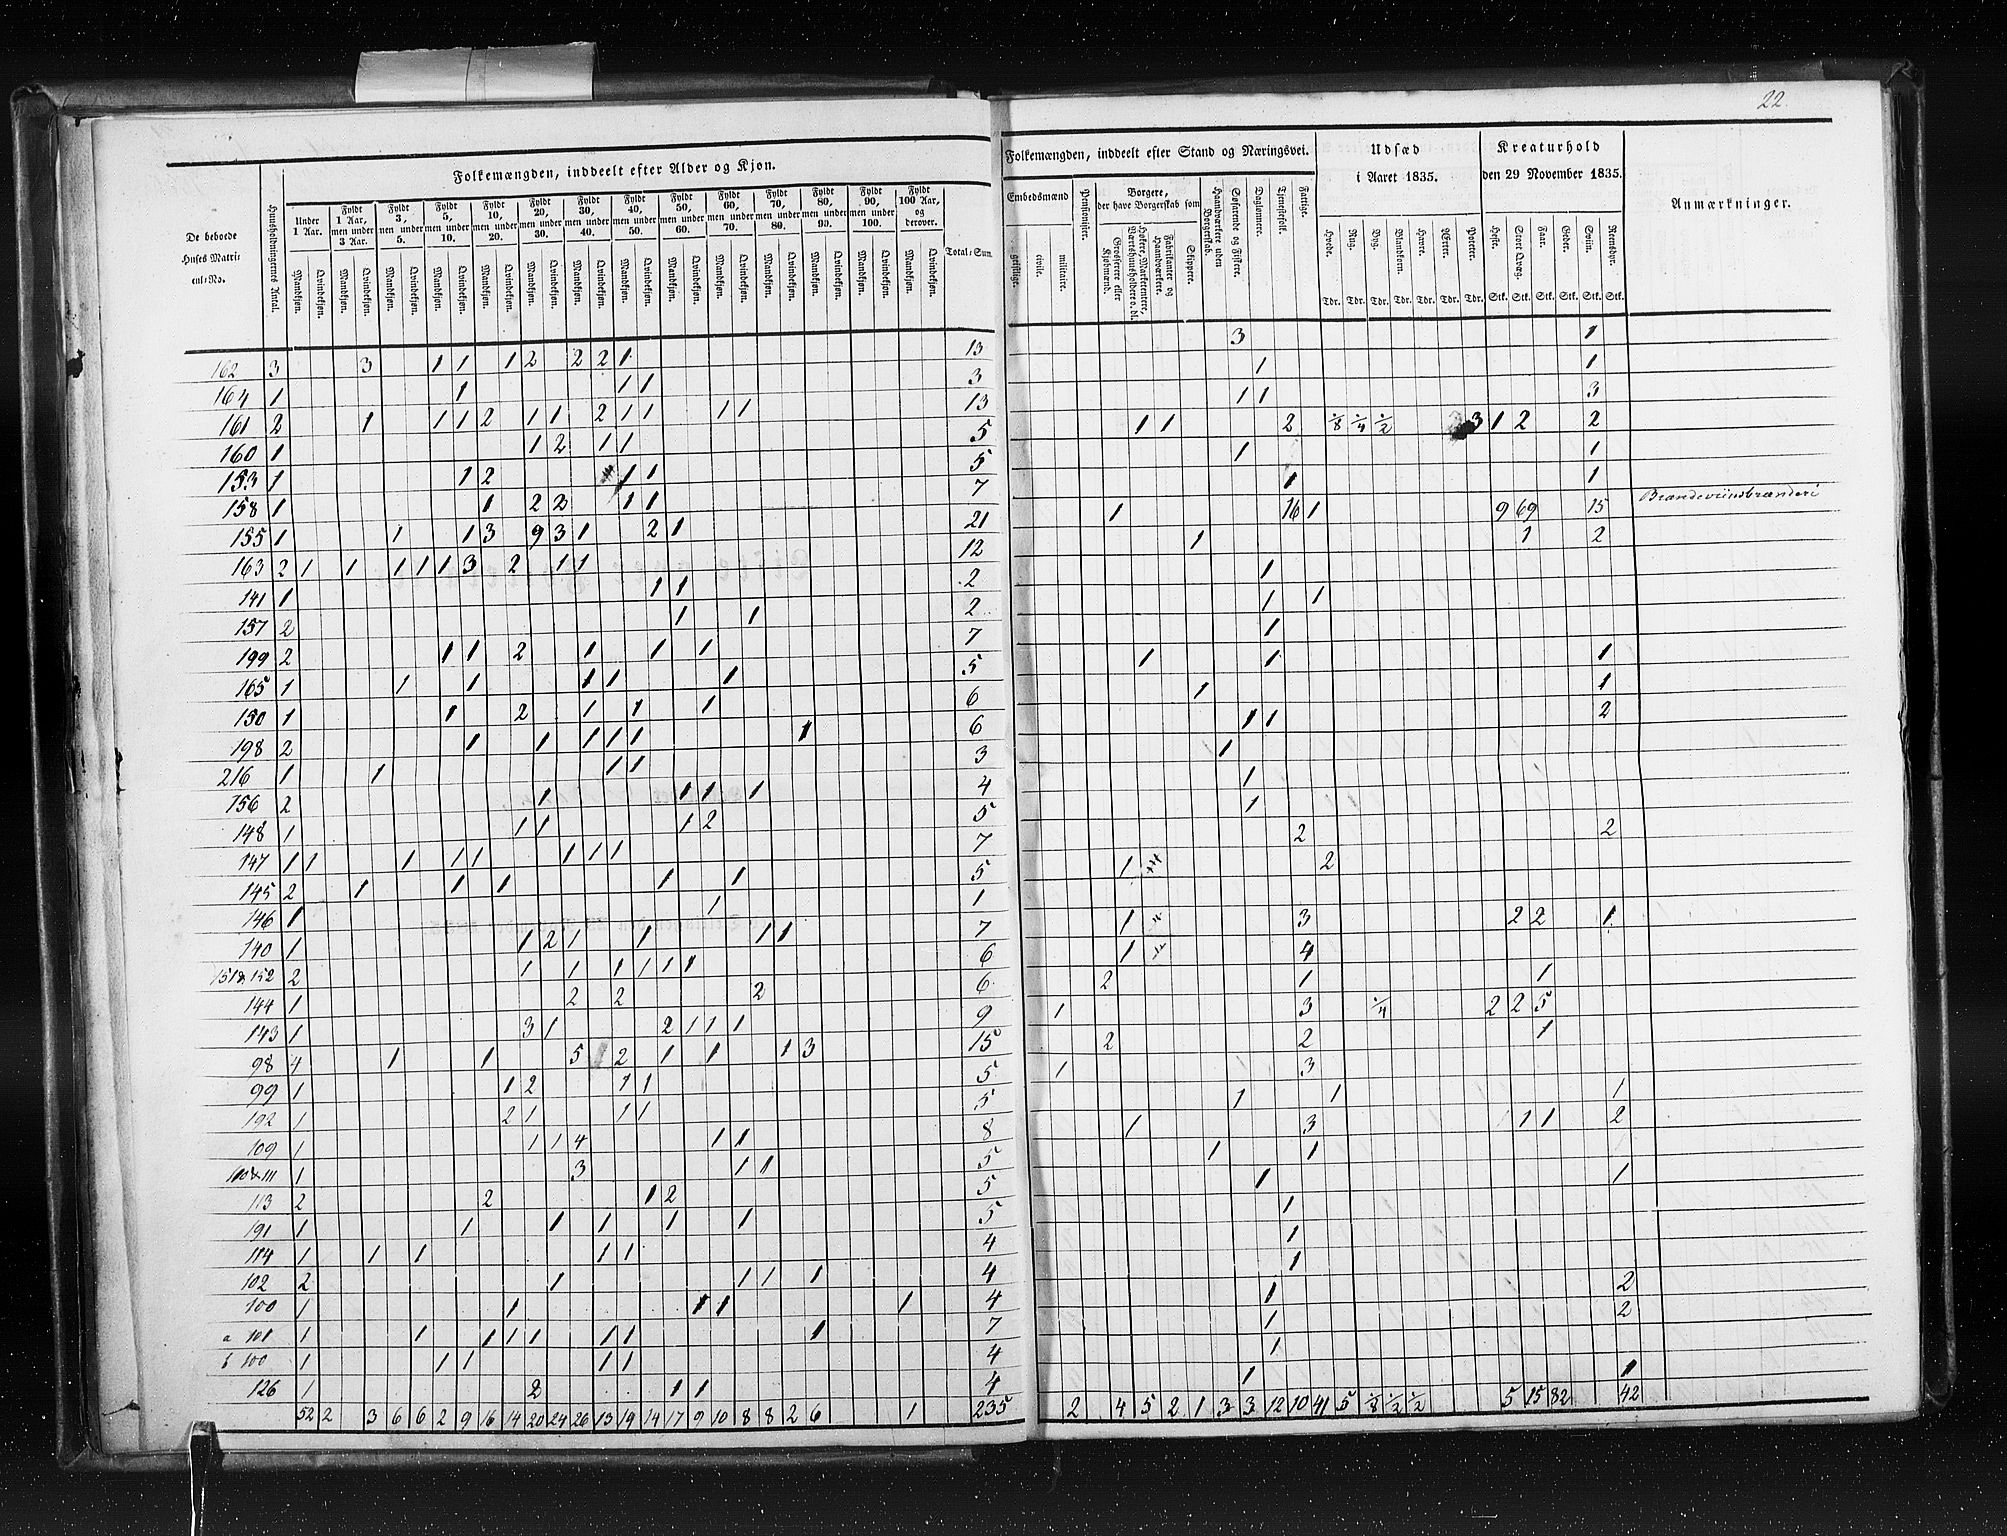 22.
Folkemængden, inddeelt efter Alder og Kjøn.
De beboede Huses Matricul-No.
Huusholdningernes Antal.
Under 1 Aar.
Fyldt 1 Aar, men under 3 Aar.
Fyldt 3, men under 5.
Fyldt 5, men under 10.
Fyldt 10, men under 20.
Fyldt 20, men under 30.
Fyldt 30, men under 40.
Fyldt 40, men under 50.
Fyldt 50, men under 60.
Fyldt 60, men under 70.
Fyldt 70, men under 80.
Fyldt 80, men under 90.
Fyldt 90, men under 100.
Fyldt 100 Aar, og derover.
Mandkjøn. Qvindekjøn.
Total-Sum.
162 3 3 1 1 1 2 2 2 1 13
164 1 1 1 1 3
161 2 1 1 1 2 1 1 2 1 1 1 1 13
160 1 1 2 1 1 5
153 1 1 2 1 1 5
158 1 1 2 2 1 1 7
155 1 1 1 3 9 3 1 2 1 21
163 2 1 1 1 1 1 3 2 1 1 12
141 1 1 1 2
157 2 1 1 2
199 2 1 1 2 1 1 1 7
165 1 1 1 1 1 1 5
150 1 1 2 1 1 1 6
198 2 1 1 1 1 1 1 6
216 1 1 1 1 3
156 2 1 1 1 1 4
148 1 1 1 1 2 5
147 1 1 1 1 1 1 1 1 7
145 2 1 1 1 1 1 5
146 1 1 1
140 1 1 2 1 1 1 1 7
151 & 152 2 1 1 1 1 1 1 6
144 1 2 2 2 6
143 1 3 1 2 1 1 1 9
98 4 1 1 5 2 1 1 1 3 15
99 1 1 2 1 1 5
192 1 2 1 1 1 5
109 1 1 1 4 1 1 8
110 & 111 1 3 1 1 5
113 2 2 1 2 5
191 1 1 1 1 1 1 5
114 1 1 1 1 1 4
102 2 1 1 1 1 4
100 1 1 1 1 1 4
a 101 1 1 1 1 1 1 1 1 7
b 100 1 1 1 1 1 4
126 1 2 1 1 4
52 2 3 6 6 2 9 16 14 20 24 26 13 19 14 17 9 10 8 8 2 6 1 235
Folkemængden, inddeelt efter Stand og Næringsvei.
Embedsmænd
geistlige.
civile.
militaire.
Pensionister.
Borgere, der have Borgerskab som
Grosserere eller Kjøbmænd.
Høkere, Marketentere, Værtshuusholdere o. dl.
Fabrikanter og Haandværkere.
Skippere.
Haandværkere uden Borgerskab.
Søfarende og Fiskere.
Daglønnere.
Tjenestefolk.
Fattige.
Udsæd i Aaret 1835.
Hvede. Tdr.
Rug. Tdr.
Byg. Tdr.
Blandkorn. Tdr.
Havre. Tdr.
Ærter. Tdr.
Poteter. Tdr.
Kreaturhold den 29 November 1835.
Heste. Stk.
Stort Qvæg. Stk.
Faar. Stk.
Geder. Stk.
Sviin. Stk.
Reensdyr. Stk.
Anmærkninger.
3 1
1 1
1 1 3
1 1 2 1/8 1/4 1/2 3 1 2 2
1 1
1 1
1 16 1 9 69 15 Brændeviinsbrænderi
1 1 2
1
1 1
1
1 1 1
1 1
1 1 2
1
1
1
2 2
1 2
1 3 2 2 1
1 4
2 1 1
1 3 1/4 2 2 5
2 2 1
1 3
1 1 1
1 3 1 1 2
1 1
1 1
1
1
1
1 2
1 2
1
1 1
2 4 5 2 1 3 3 12 10 41 5 1/8 1/2 1/2 5 15 82 42